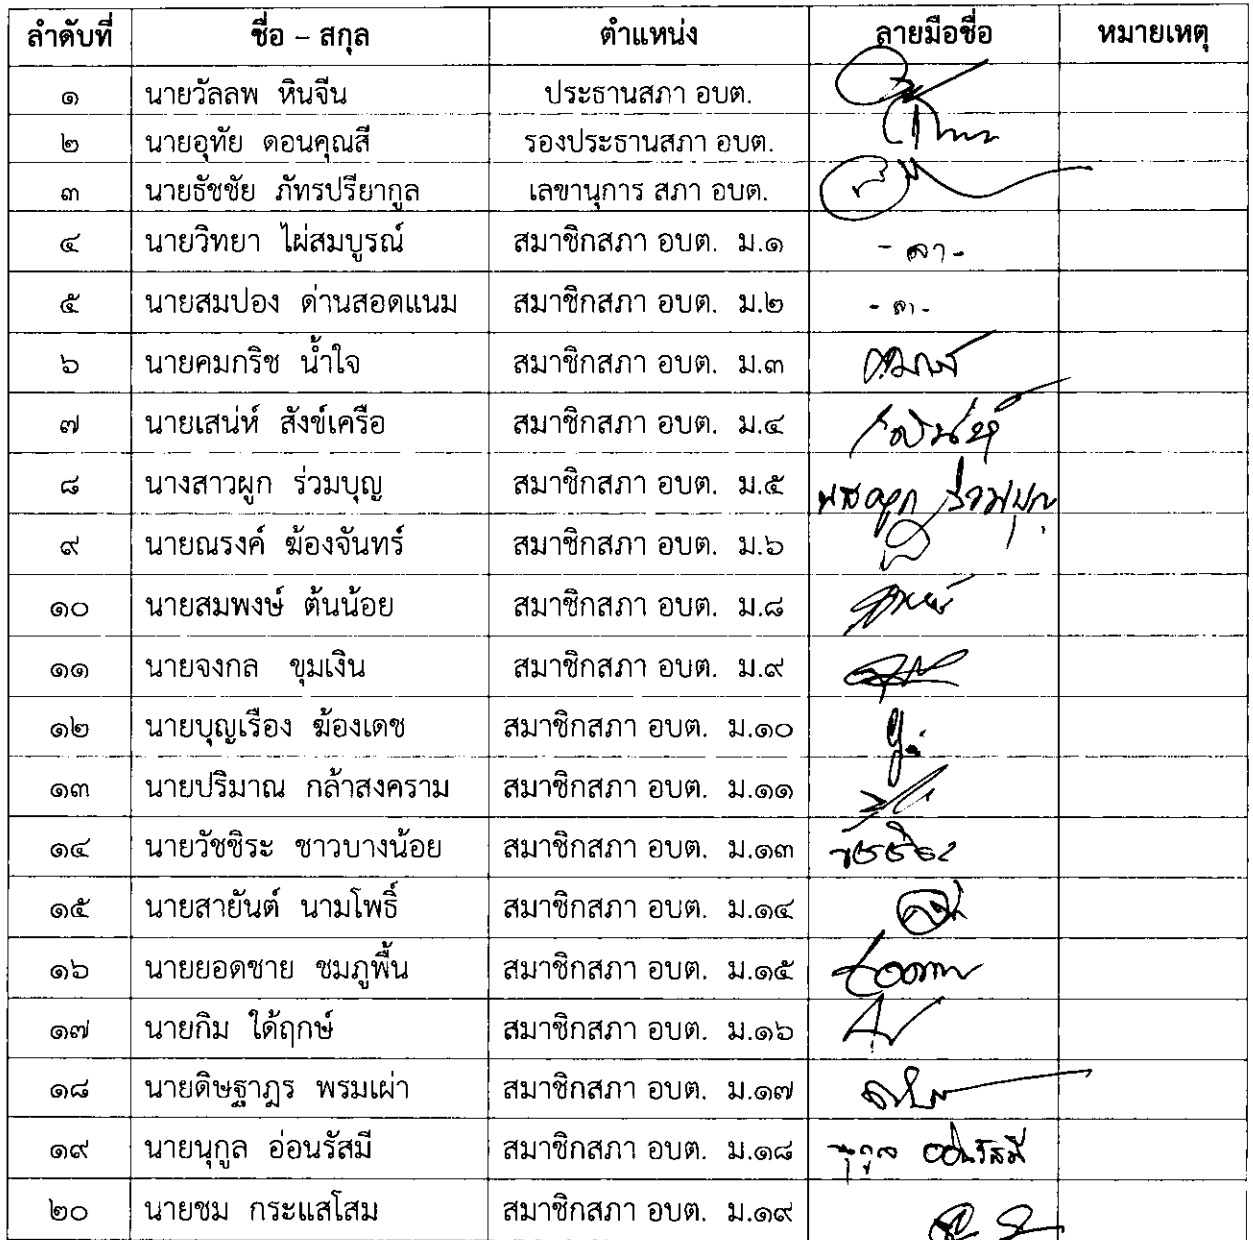 ลำดับที่ ชื่อ – สกุล ตำแหน่ง ลายมือชื่อ หมายเหตุ
๑ นายวัลลพ หินจีน ประธานสภา อบต.
๒ นายอุทัย ดอนคุณสี รองประธานสภา อบต.
๓ นายธัชชัย ภัทรปรียากูล เลขานุการ สภา อบต.
๔ นายวิทยา ไผ่สมบูรณ์ สมาชิกสภา อบต. ม.๑ - ลา -
๕ นายสมปอง ด่านสอดแนม สมาชิกสภา อบต. ม.๒ - ลา -
๖ นายคมกริช น้ำใจ สมาชิกสภา อบต. ม.๓
๗ นายเสน่ห์ สังข์เครือ สมาชิกสภา อบต. ม.๔
๘ นางสาวผูก ร่วมบุญ สมาชิกสภา อบต. ม.๕
๙ นายณรงค์ ฆ้องจันทร์ สมาชิกสภา อบต. ม.๖
๑๐ นายสมพงษ์ ต้นน้อย สมาชิกสภา อบต. ม.๘
๑๑ นายจงกล ขุมเงิน สมาชิกสภา อบต. ม.๙
๑๒ นายบุญเรือง ฆ้องเดช สมาชิกสภา อบต. ม.๑๐
๑๓ นายปริมาณ กล้าสงคราม สมาชิกสภา อบต. ม.๑๑
๑๔ นายวัชชิระ ชาวบางน้อย สมาชิกสภา อบต. ม.๑๓
๑๕ นายสายันต์ นามโพธิ์ สมาชิกสภา อบต. ม.๑๔
๑๖ นายยอดชาย ชมภูพื้น สมาชิกสภา อบต. ม.๑๕
๑๗ นายกิม ใด้ฤกษ์ สมาชิกสภา อบต. ม.๑๖
๑๘ นายดิษฐาฎร พรมเผ่า สมาชิกสภา อบต. ม.๑๗
๑๙ นายนุกูล อ่อนรัสมี สมาชิกสภา อบต. ม.๑๘ นุกูล อ่อนรัสมี
๒๐ นายชม กระแสโสม สมาชิกสภา อบต. ม.๑๙